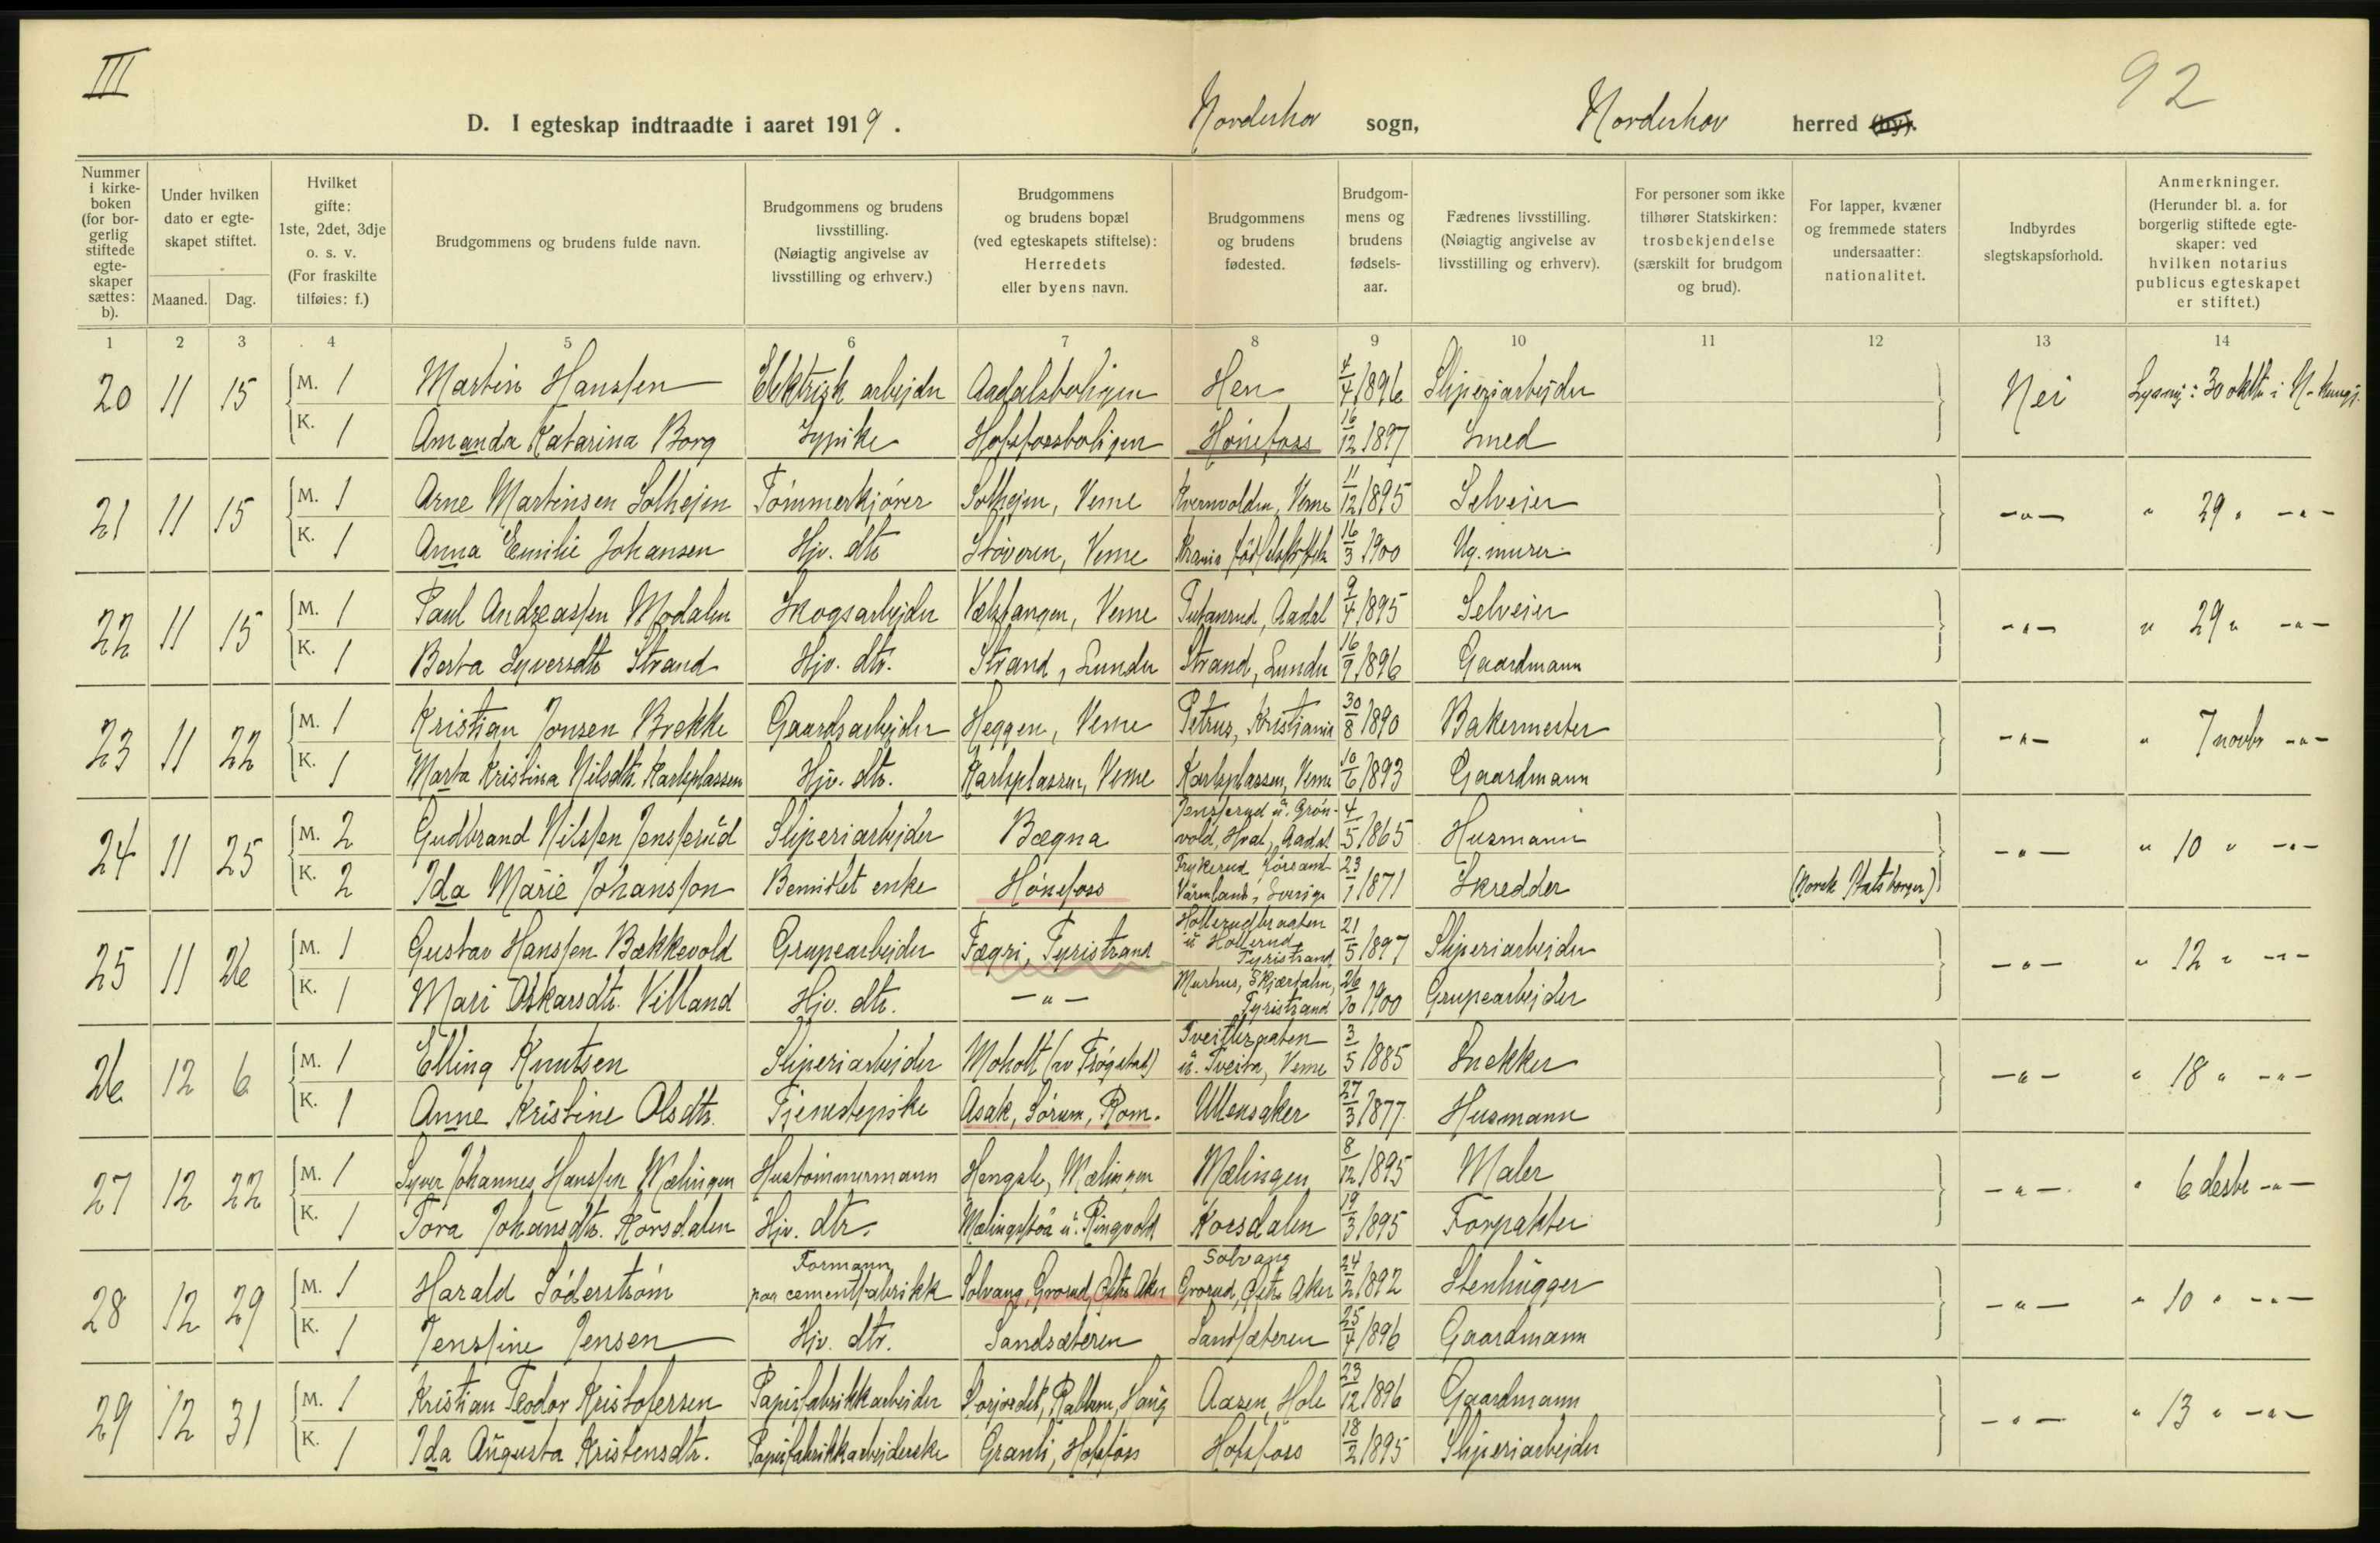 III
92
D. I egteskap indtraadte i aaret 1919.
Norderhov sogn, Norderhov herred (by).
Nummer i kirkeboken (for borgerlig stiftede egteskaper sættes: b).
Under hvilken dato er egteskapet stiftet.
Maaned. Dag.
Hvilket gifte: 1ste, 2det, 3dje o. s. v. (For fraskilte tilføies: f.)
Brudgommens og brudens fulde navn.
Brudgommens og brudens livsstilling. (Nøiagtig angivelse av livsstilling og erhverv.)
Brudgommens og brudens bopæl (ved egteskapets stiftelse): Herredets eller byens navn.
Brudgommens og brudens fødested.
Brudgommens og brudens fødselsaar.
Fædrenes livsstilling. (Nøiagtig angivelse av livsstilling og erhverv).
For personer som ikke tilhører Statskirken: trosbekjendelse (særskilt for brudgom og brud).
For lapper, kvæner og fremmede staters undersaatter: nationalitet.
Indbyrdes slegtskapsforhold.
Anmerkninger. (Herunder bl. a. for borgerlig stiftede egteskaper: ved hvilken notarius publicus egteskapet er stiftet.)
1 2 3 4 5 6 7 8 9 10 11 12 13 14
20 11 15 M. 1 Martin Hanssen Elektrisk arbejder Aadalsboligen Hen 4/4 1896 Sliperiarbejder Nei Lysning: 30 oktbr i N-
K. 1 Amanda Katarina Borg Sypike Hofsfossboligen Hønefoss 16/12 1897 Smed
21 11 15 M. 1 Arne Martinsen Solhejm Tømmerkjører Solhejm, Veme Kvernvolden, Veme 11/12 1895 Selveier -"- " 29 " -"-
K. 1 Anna Emilie Johansen Hjv. dtr Støveren, Veme Krania 16/3 1900 Ug. murer
22 11 15 M. 1 Paul Andreassen Modalen Skogsarbejder Veme Aadal 9/4 1895 Selveier -"- " 29 " -"-
K. 1 Berta Syversdtr Strand Hjv. dtr. Strand, Lunder Strand, Lunder 16/9 1896 Gaardmann
23 11 22 M. 1 Kristian Jonsen Brekke Gaardsarbejder Heggen, Veme Petrus, Kristiania 30/8 1890 Bakermester -"- " 7 novbr -"-
K. 1 Marta Kristina Nilsdtr. Karlsplassen Hjv. dtr. Karlsplassen, Veme Karlsplassen, Veme 10/6 1893 Gaardmann
24 11 25 M. 2 Gudbrand Nilssen Jensserud Sliperiarbejder Bægna Jensserud u. Grønvold, Hval, Aadal 4/5 1865 Husmann -"- " 10 " -"-
K. 2 Ida Marie Johansson Bemidlet enke Hønefoss Frykerud Värmland, Sverige 23/1 1871 Skredder (Norsk Statsborger)
25 11 26 M. 1 Gustav Hanssen Bækkevold Grupearbejder Fægri, Tyristrand Hollerudbraaten u Hollerud, Tyristrand 21/5 1897 Sliperiarbejder -"- " 12 " -"-
K. 1 Mari Oskarsdtr. Villand Hjv. dtr. -"- Murhus, Skjærdalen, Tyristrand 26/10 1900 Grupearbejder
26 12 6 M. 1 Elling Knutsen Sliperiarbejder Moholt (av Trøgstad) Tveitbraaten u. Tveita, Veme 3/5 1885 Snekker -"- " 18 " -"-
K. 1 Anne Kristine Olsdtr. Tjenestepike Asak, Sørum, Rom. Ullensaker 27/3 1877 Husmann
27 12 22 M. 1 Syver Johannes Hanssen Mælingen Hustømmermann Hengsle, Mælingen Mælingen 8/12 1895 Maler -"- " 6 desbr -"-
K. 1 Tora Johansdtr. Korsdalen Hjv. dtr. u. Ringvold Korsdalen 19/3 1895 Forpakter
28 12 29 M. 1 Harald Söderström Formann paa cementfabrikk Solvang, Grorud, Østre Aker Solvang Grorud, Østre Aker 24/2 1892 Stenhugger -"- " 10 " -"-
K. 1 Jenssine Jensen Hjv. dtr. Sandsæteren Sandsæteren 25/4 1896 Gaardmann
29 12 31 M. 1 Kristian Teodor Kristofersen Papirfabrikkarbeider Haug Aasen, Hole 23/12 1896 Gaardmann -"- " 13 " -"-
K. 1 Ida Augusta Kristensdtr. Papirfabrikkarbejderske Granli, Hofsfoss Hofsfoss 18/2 1895 Sliperiarbejder